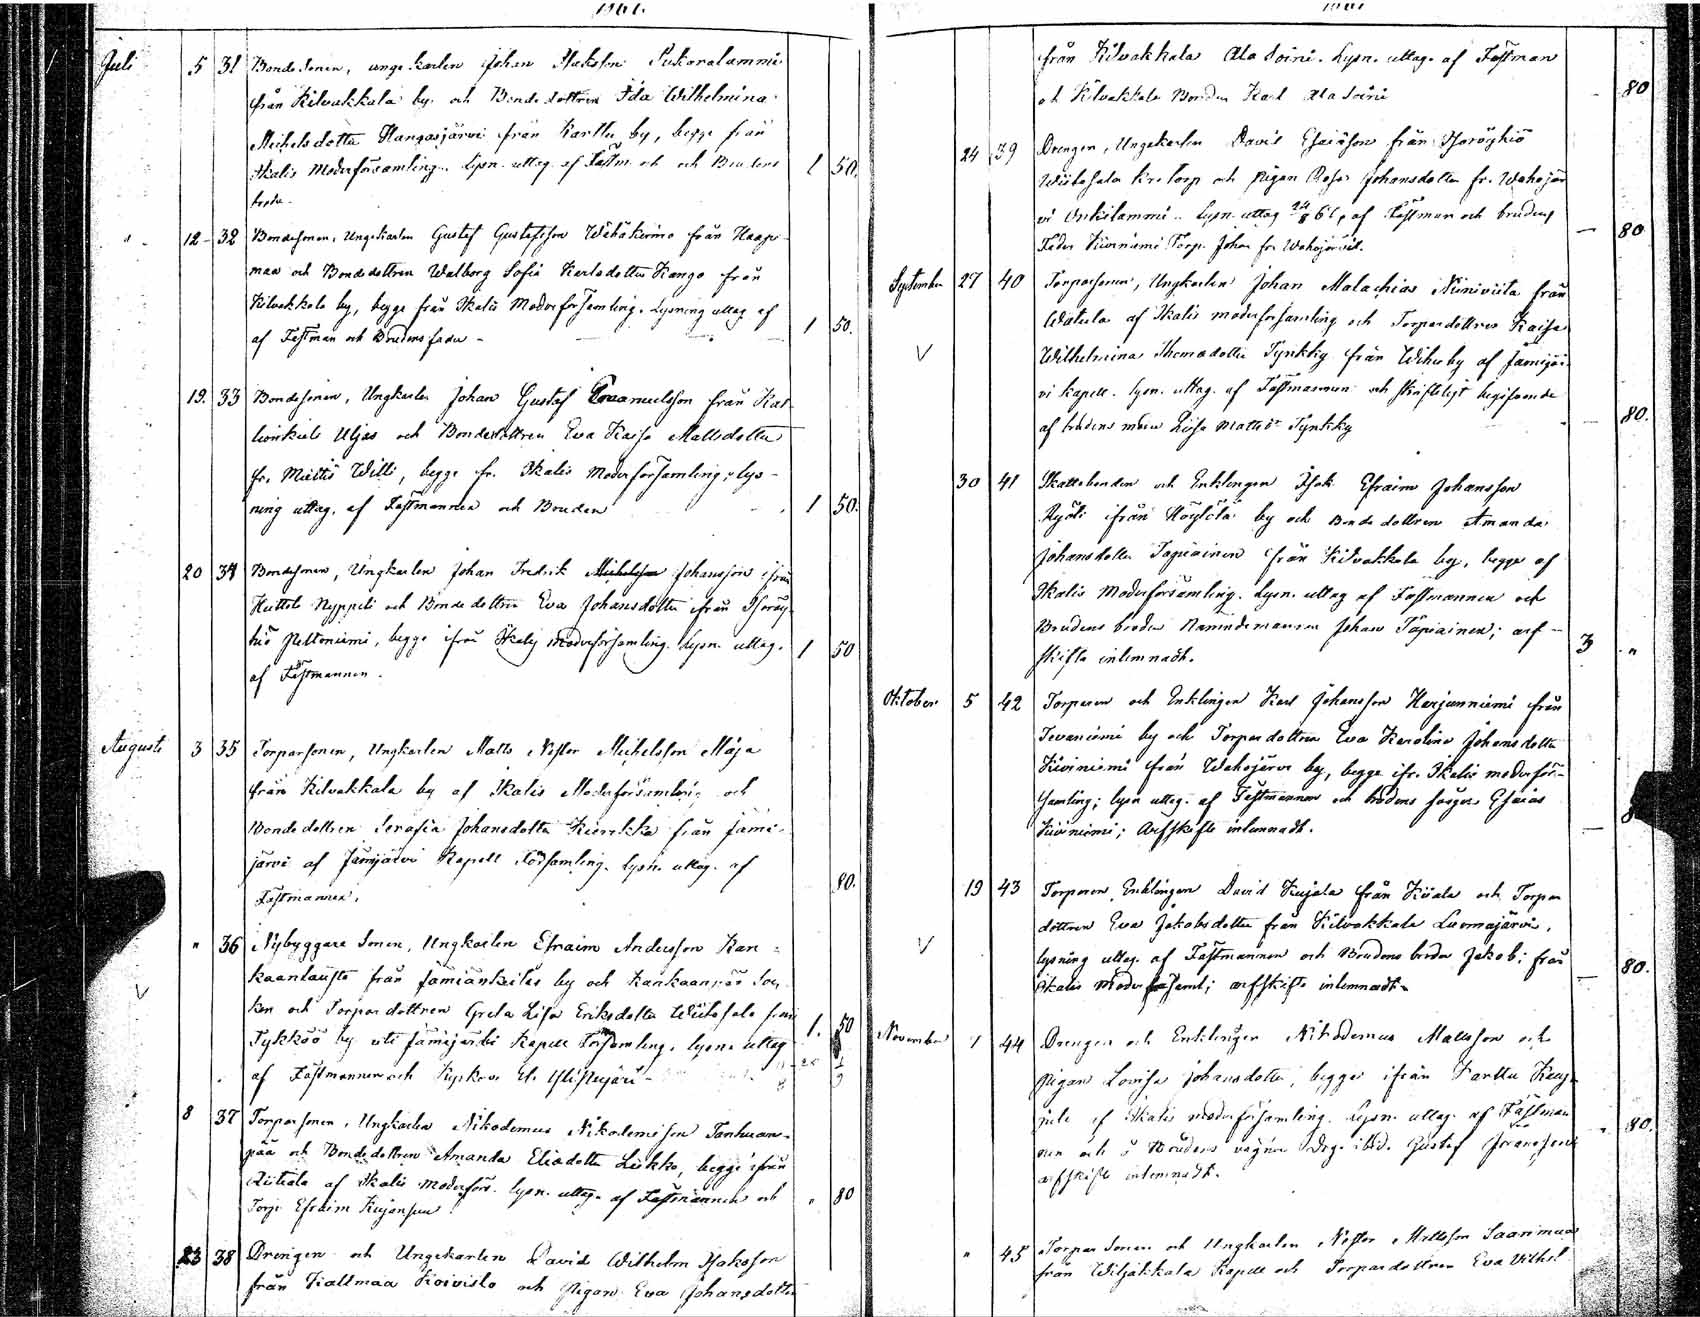 Juli 5 31 Bondesonen, unge karlen Johan Isaksson Sukoralammi
från Kilvakkala by och Bondedottren Ida Wilhelmina
Michelsdotter Hangasjärvi från Karttu by, begge från
Ikalis Moderförsamling. Lysn. uttag. af Fästm. och och Brudens 1 50.
12 32 Bondesonen, Ungekarlen Gustaf Gustafsson från Haap-
maa och Bondedottren Walborg Sofia Karlsdotter Kango från
Kilvakkala by, begge från Ikalis Moderförsamling. Lysning uttag af
af Fästman och Brudens fader - 1 50.
19. 33 Bondesonen, Ungkarlen Johan Gustaf Emanuelsson från
Uljas och Bondedottren Eva Kaisa Mattsdotter
fr. Willi, begge fr. Ikalis Moderförsamling; lys-
ning uttag. af Fästmannen och Bruden 1 50.
20 34 Bondesonen, Ungkarlen Johan Fredrik Michelsson Johansson ifrån
Nyppeli och Bondedottren Eva Johansdotter ifrån Isoröy-
hiö Peltoniemi, begge ifrån Ikalis moderförsamling. Lysn. uttag.
af Fästmannen. 1 50
Augusti 3 35 Torparsonen, Ungkarlen Matts Nestor Michelsson Maja
från Kilvakkala by af Ikalis Moderförsamling och
Bondedottren Serafia Johansdotter från Jämi-
järvi af Jämijärvi Kapell Församling. Lysn. uttag. af
Fästmannen. 80.
" 36 Nybyggare Sonen, Ungkarlen Efraim Andersson Kan-
kaanlausta från by och Kankaanpää Soc-
ken och Torpardottren Greta Lisa Eriksdotter
Tykköö by uti Jämijärvi Kapell Församling. lysn. uttag 1. 50
af Fästmannen och
8 37 Torparsonen, Ungkarlen Nikodemus Nikodemisson Tanhuan-
pää och Bondedottren Amanda Eliædotter Leikko, begge ifrån
af Ikalis moderförs. lysn. uttag. af Fästmannen och " 80
Torp. Efraim
23 38 Drengen och Ungekarlen David Wilhelm Isaksson
från Kallmaa Koivisto och Pigan Eva Johansdotter
från Kilvakkala Ala Soini. Lysn. uttag. af Fästman
och Kilvakkala Bonden Karl Ala Soini 80
24 39 Drengen, Ungekarlen David Esaiasson från Isoröyhiö
torp och Pigan Rosa Johansdotter fr. Wahojär
vi Onkilammi. Lysn. uttag af Fästman och brudens
Fader Kiviniemi Torp. Johan fr. Wahojärvi. — 80
September 27 40 Torparsonen, Ungkarlen Johan Malachias Niiniviita från
Watula af Ikalis moderförsamling och Torpardottren Kaisa
V Wilhelmina Thomædotter Tynkky från Wihuby af Jämijär-
vi Kapell. lysn. uttag. af Fästmannen och skrifteligt begifvande
af brudens moder Lisa Mattsdr Tynkky 80.
30 41 Skattebonden och Enklingen Isak Efraim Johansson
ifrån Höytölä by och Bondedottren Amanda
Johansdotter Tapiainen från Kilvakkala by, begge af
Ikalis Moderförsamling. Lysn. uttag af Fästmannen och
Brudens broder Nämndemannen Johan Tapiainen; arf-
skifte inlemnadt. 3 "
Oktober 5 42 Torparen och Enklingen Karl Johansson Harjunniemi från
Tevaniemi by och Torpardottren Eva Karolina Johansdotter
Kiviniemi från Wahojärvi by, begge ifr. Ikalis moderför-
samling; lysn uttag. af Fästmannen och brudens Esaias
Kiviniemi; Arfskifte inlemnadt. — 8
19 43 Torparen, Enklingen David Kujala från och Torpar
dottren Eva Jakobsdotter från Kilvakkala Luomajärvi,
V lysning uttag. af Fästmannen och Brudens broder Jakob; från
Ikalis Moderförsaml; arfskifte inlemnadt. — 80.
November 1 44 Drengen och Enklingen Nikodemus Mattsson och
Pigan Lovisa Johansdotter, begge ifrån Karttu
af Ikalis moderförsamling. Lysn. uttag. af Fästman
nen och å Brudens vägnar Drg. ibid. Gustaf
arfskifte inlemnadt. " 80.
" 45 Torpar Sonen och Ungkarlen Nestor Mattsson Saarimaa
från Wiljakkala Kapell och Torpardottren Eva Vilhel